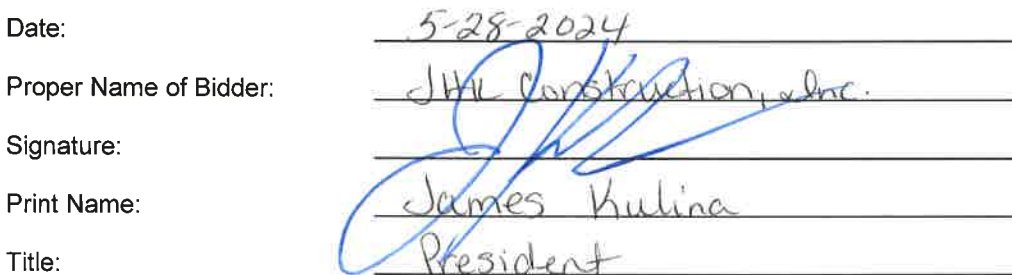 Date: 5-28-2024
Proper Name of Bidder: JHK Construction, Inc.
Signature:
Print Name: James Kulina
Title: President